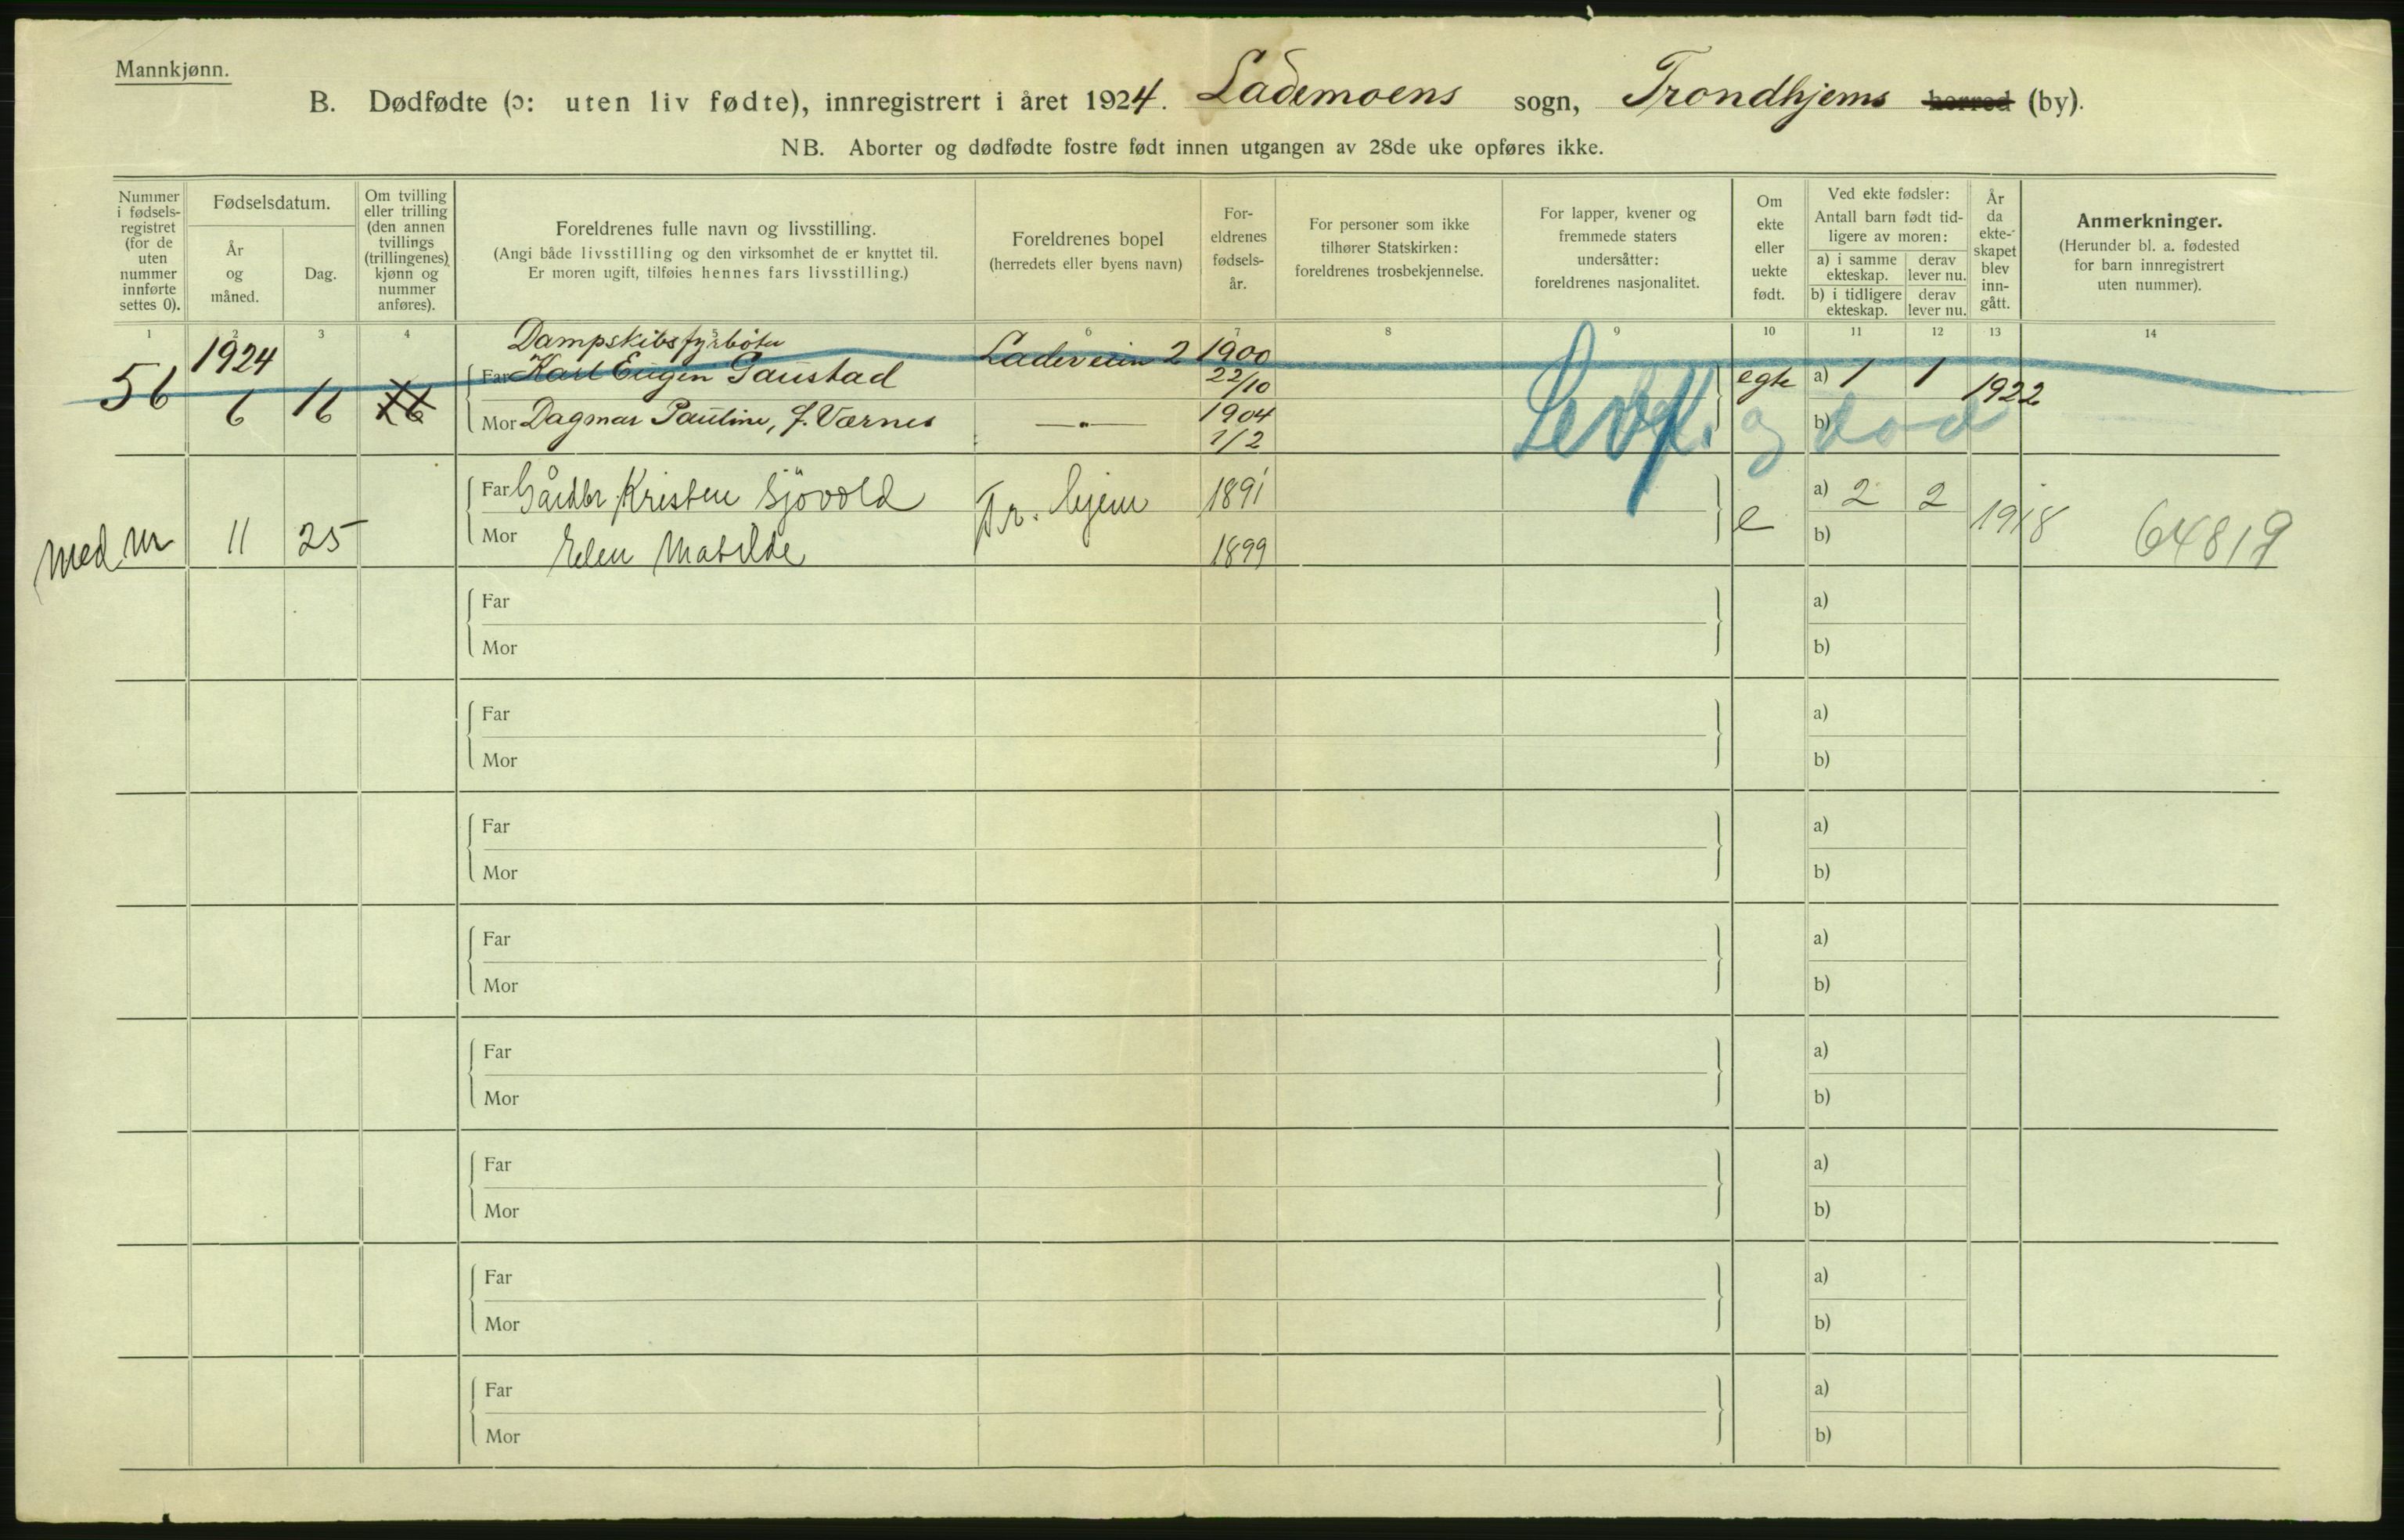 Mannkjønn.
B. Dødfødte (ɔ: uten liv fødte), innregistrert i året 1924. Lademoens sogn, Trondhjems herred (by).
NB. Aborter og dødfødte fostre født innen utgangen av 28de uke opføres ikke.
Nummer i fødsels-registret (for de uten nummer innførte settes 0).
Fødselsdatum.
År og måned.
Dag.
Om tvilling eller trilling (den annen tvillings (trillingenes) kjønn og nummer anføres).
Foreldrenes fulle navn og livsstilling.
(Angi både livsstilling og den virksomhet de er knyttet til.
Er moren ugift, tilføies hennes fars livsstilling.)
Foreldrenes bopel
(herredets eller byens navn)
For-eldrenes fødsels-år.
For personer som ikke tilhører Statskirken: foreldrenes trosbekjennelse.
For lapper, kvener og fremmede staters undersåtter: foreldrenes nasjonalitet.
Om ekte eller uekte født.
Ved ekte fødsler:
Antall barn født tid-ligere av moren:
a) i samme ekteskap.
derav lever nu.
b) i tidligere ekteskap.
derav lever nu.
År da ekte-skapet blev inn-gått.
Anmerkninger.
(Herunder bl. a. fødested for barn innregistrert uten nummer).
1 2 3 4 5 6 7 8 9 10 11 12 13 14
Dampskibsfyrbøter
56 1924 6 16 Far Karl Eugen Gaustad Ladeveien 2 1900 22/10 egte a) 1 1 1922
Mor Dagmar Pauline, f. Værnes —„— 1904 1/2 b)
Levf. og død
Med nr 11 25 Far Gårdbr Kristen Sjøvold Tr.hjem 1891 e a) 2 2 1918 64819
Mor Elen Matilde 1899 b)
Far a)
Mor b)
Far a)
Mor b)
Far a)
Mor b)
Far a)
Mor b)
Far a)
Mor b)
Far a)
Mor b)
Far a)
Mor b)
Far a)
Mor b)